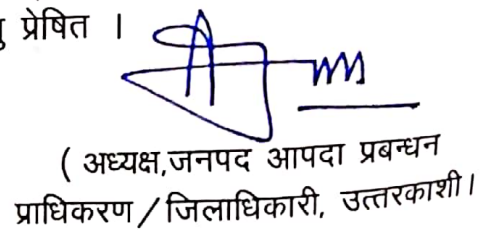 ु प्रेषित ।
( अध्यक्ष,जनपद आपदा प्रबन्धन
प्राधिकरण / जिलाधिकारी, उत्तरकाशी।